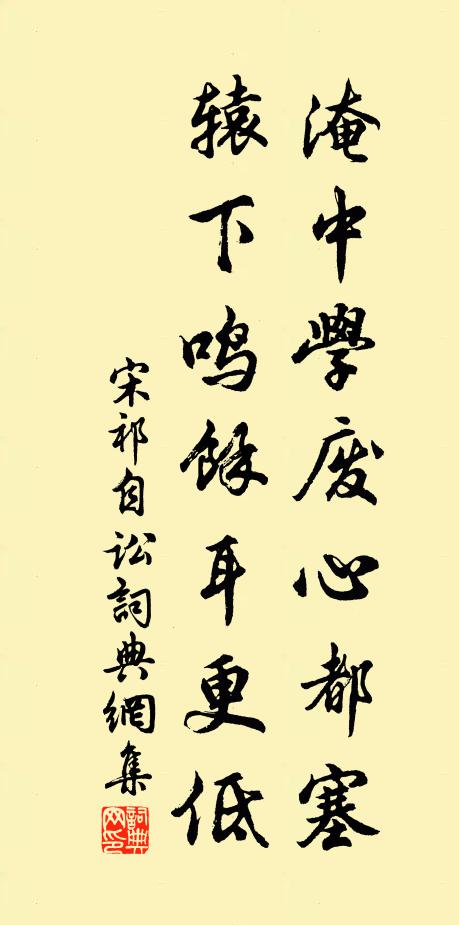 淹中學废心都塞
辕下鸣餘耳更低
宋祁自讼詞典網集
詞典網印